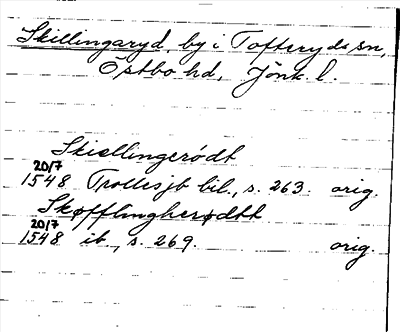 Skillingaryd, by i Tofteryds sn,
Östbo hd, Jönk. l.
Skiellingerødt
20/7
1548 Trollesjb bil., s. 263. orig.
Skøfflingherødtt
20/7
1548 ib., s. 269. orig.